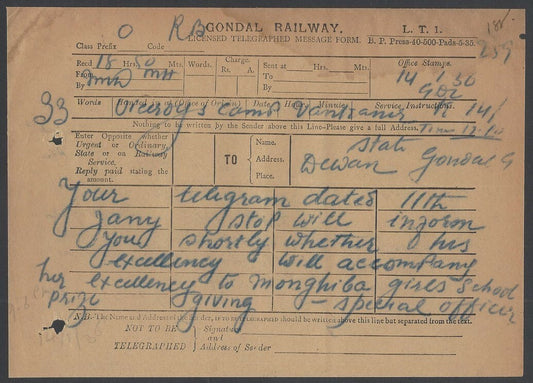 O RB
GONDAL RAILWAY.
L. T. 1.
LICENSED TELEGRAPHED MESSAGE FORM.
B. P. Press-40-500-Pads-5-35.
Class Prefix Code
259
Recd 18 Hrs. 0 Ms. Words. Charge Sent at Hrs. Ms. Office Stamps.
From Rs. A. To 14 1 36
By By
33 Words Handed in (Office of Origin) Date Hours Minutes Service Instructions.
Viceroy's Camp 14/1
Nothing to be written by the Sender above this Line—Please give a full Address.
Enter Opposite whether
Urgent or Ordinary,
State or on Railway
Service.
Reply paid stating the
amount.
TO
Name.
Address.
Place.
State
Dewan Gondal
Your telegram dated 11th
Jany stop will inform
you shortly whether his
excellency will accompany
her excellency to Monghiba girls school
prize giving - special officer
N.B. The Name and Address of the Sender, if NOT TO BE TELEGRAPHED should be written above this line but separated from the text.
NOT TO BE
TELEGRAPHED
Signature
and
Address of Sender